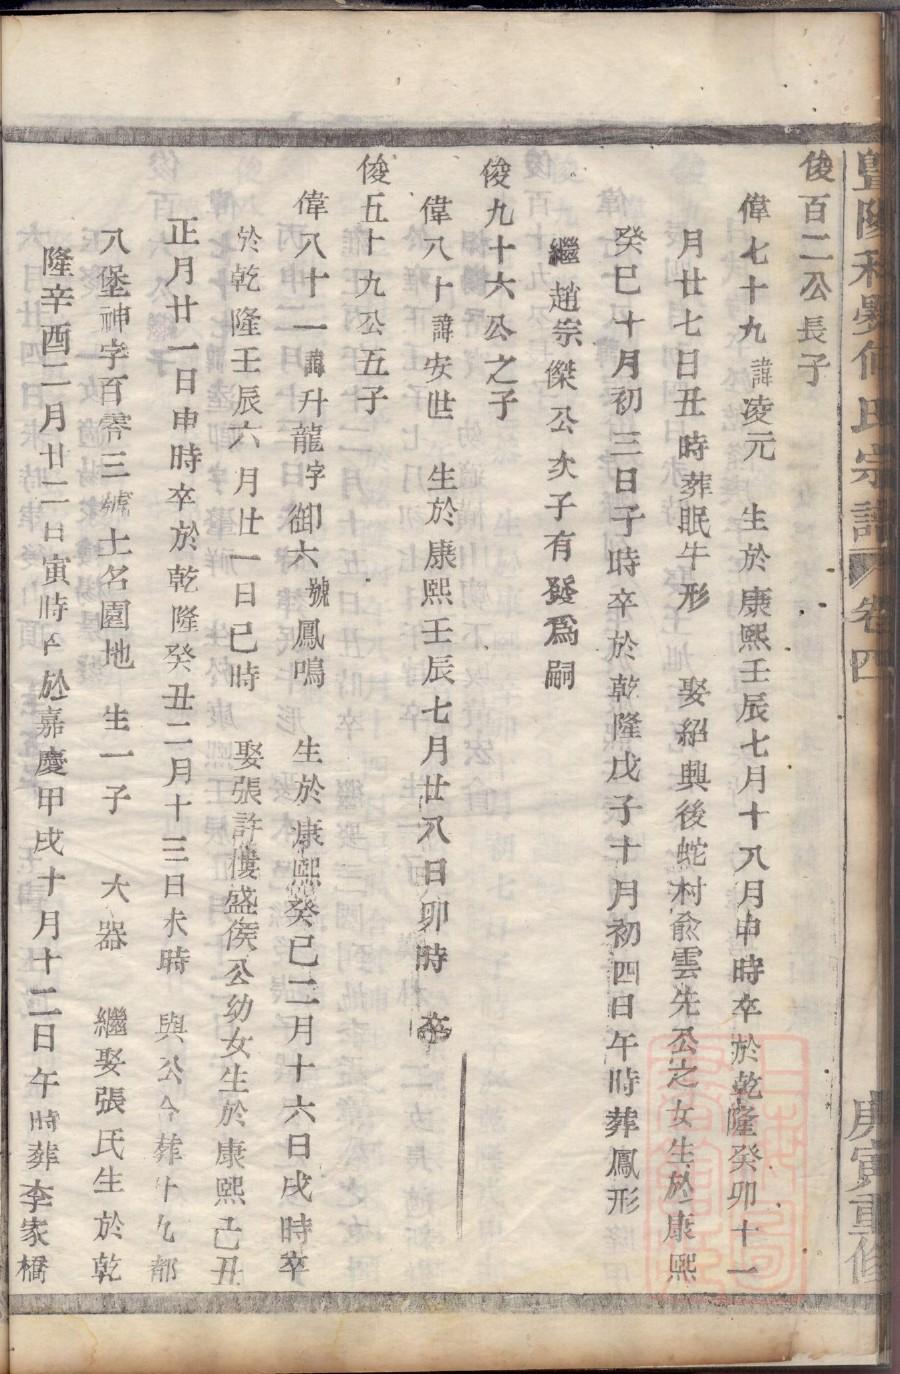 暨陽 何氏宗譜 卷四 庚寅重修
俊百二公長子
偉七十九諱凌元 生於康熙壬辰七月十八月申時卒於乾隆癸卯十一
月廿七日丑時葬眠牛形 娶紹興後蛇村俞雲先公之女生於康熙
癸巳十月初三日子時卒於乾隆戊子十月初四日午時葬鳳形
繼趙宗傑公次子有發為嗣
俊九十六公之子
偉八十諱安世 生於康熙壬辰七月廿八日卯時 卒
俊五十九公五子
偉八十一諱升龍字御六號鳳鳴 生於康熙癸巳二月十六日戌時卒
於乾隆壬辰六月廿一日巳時 娶張許樓盛侯公幼女生於康熙己丑
正月廿一日申時卒於乾隆癸丑二月十三日未時 與公合葬十九都
八堡神字百零三號土名園地 生一子 大器 繼娶張氏生於乾
隆辛酉二月廿二日寅時卒於嘉慶甲戌十月十二日午時葬李家橋